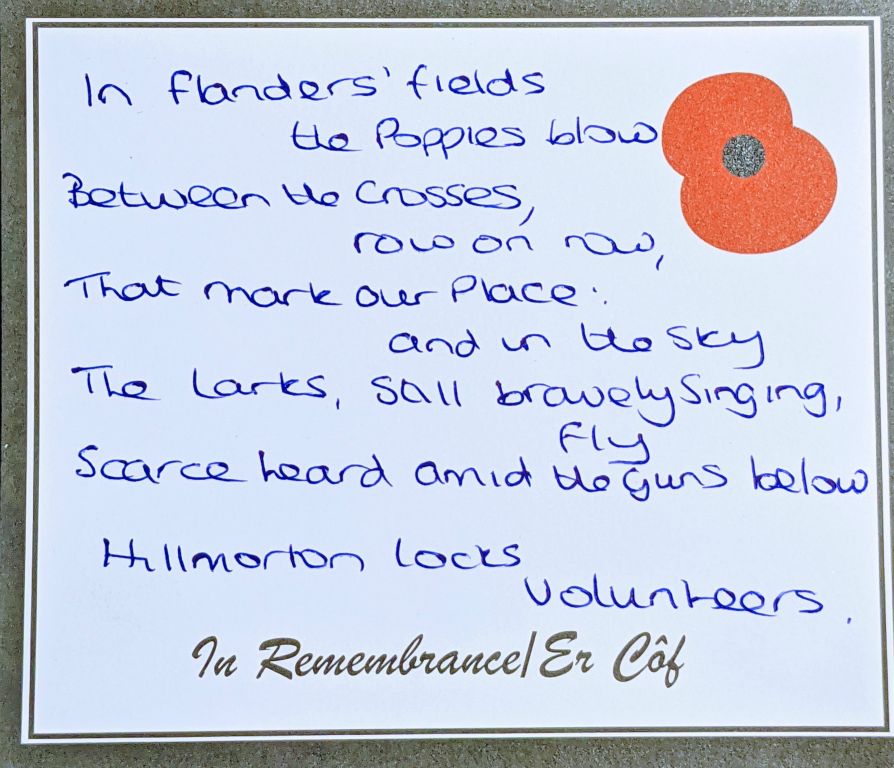 In Flanders' fields
the Poppies blow
Between the Crosses,
row on row,
That mark our Place:
and in the Sky
The Larks, Still bravely Singing,
Fly
Scarce heard amid the Guns below
Hillmorton Locks
Volunteers.
In Remembrance/Er Côf